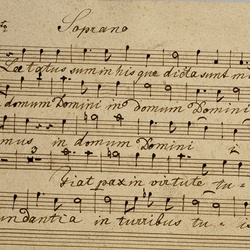 Soprano
Lætatus sum in his que dicta sunt mi
domum Domini in domum Domini
mus in domum Domini
Fiat pax in virtute tu
undantia in turribus tu -